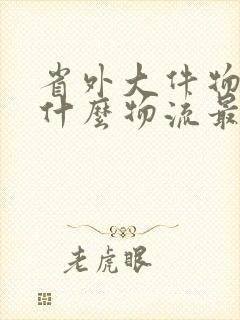 省外大件物
什麼物流最
老虎眼